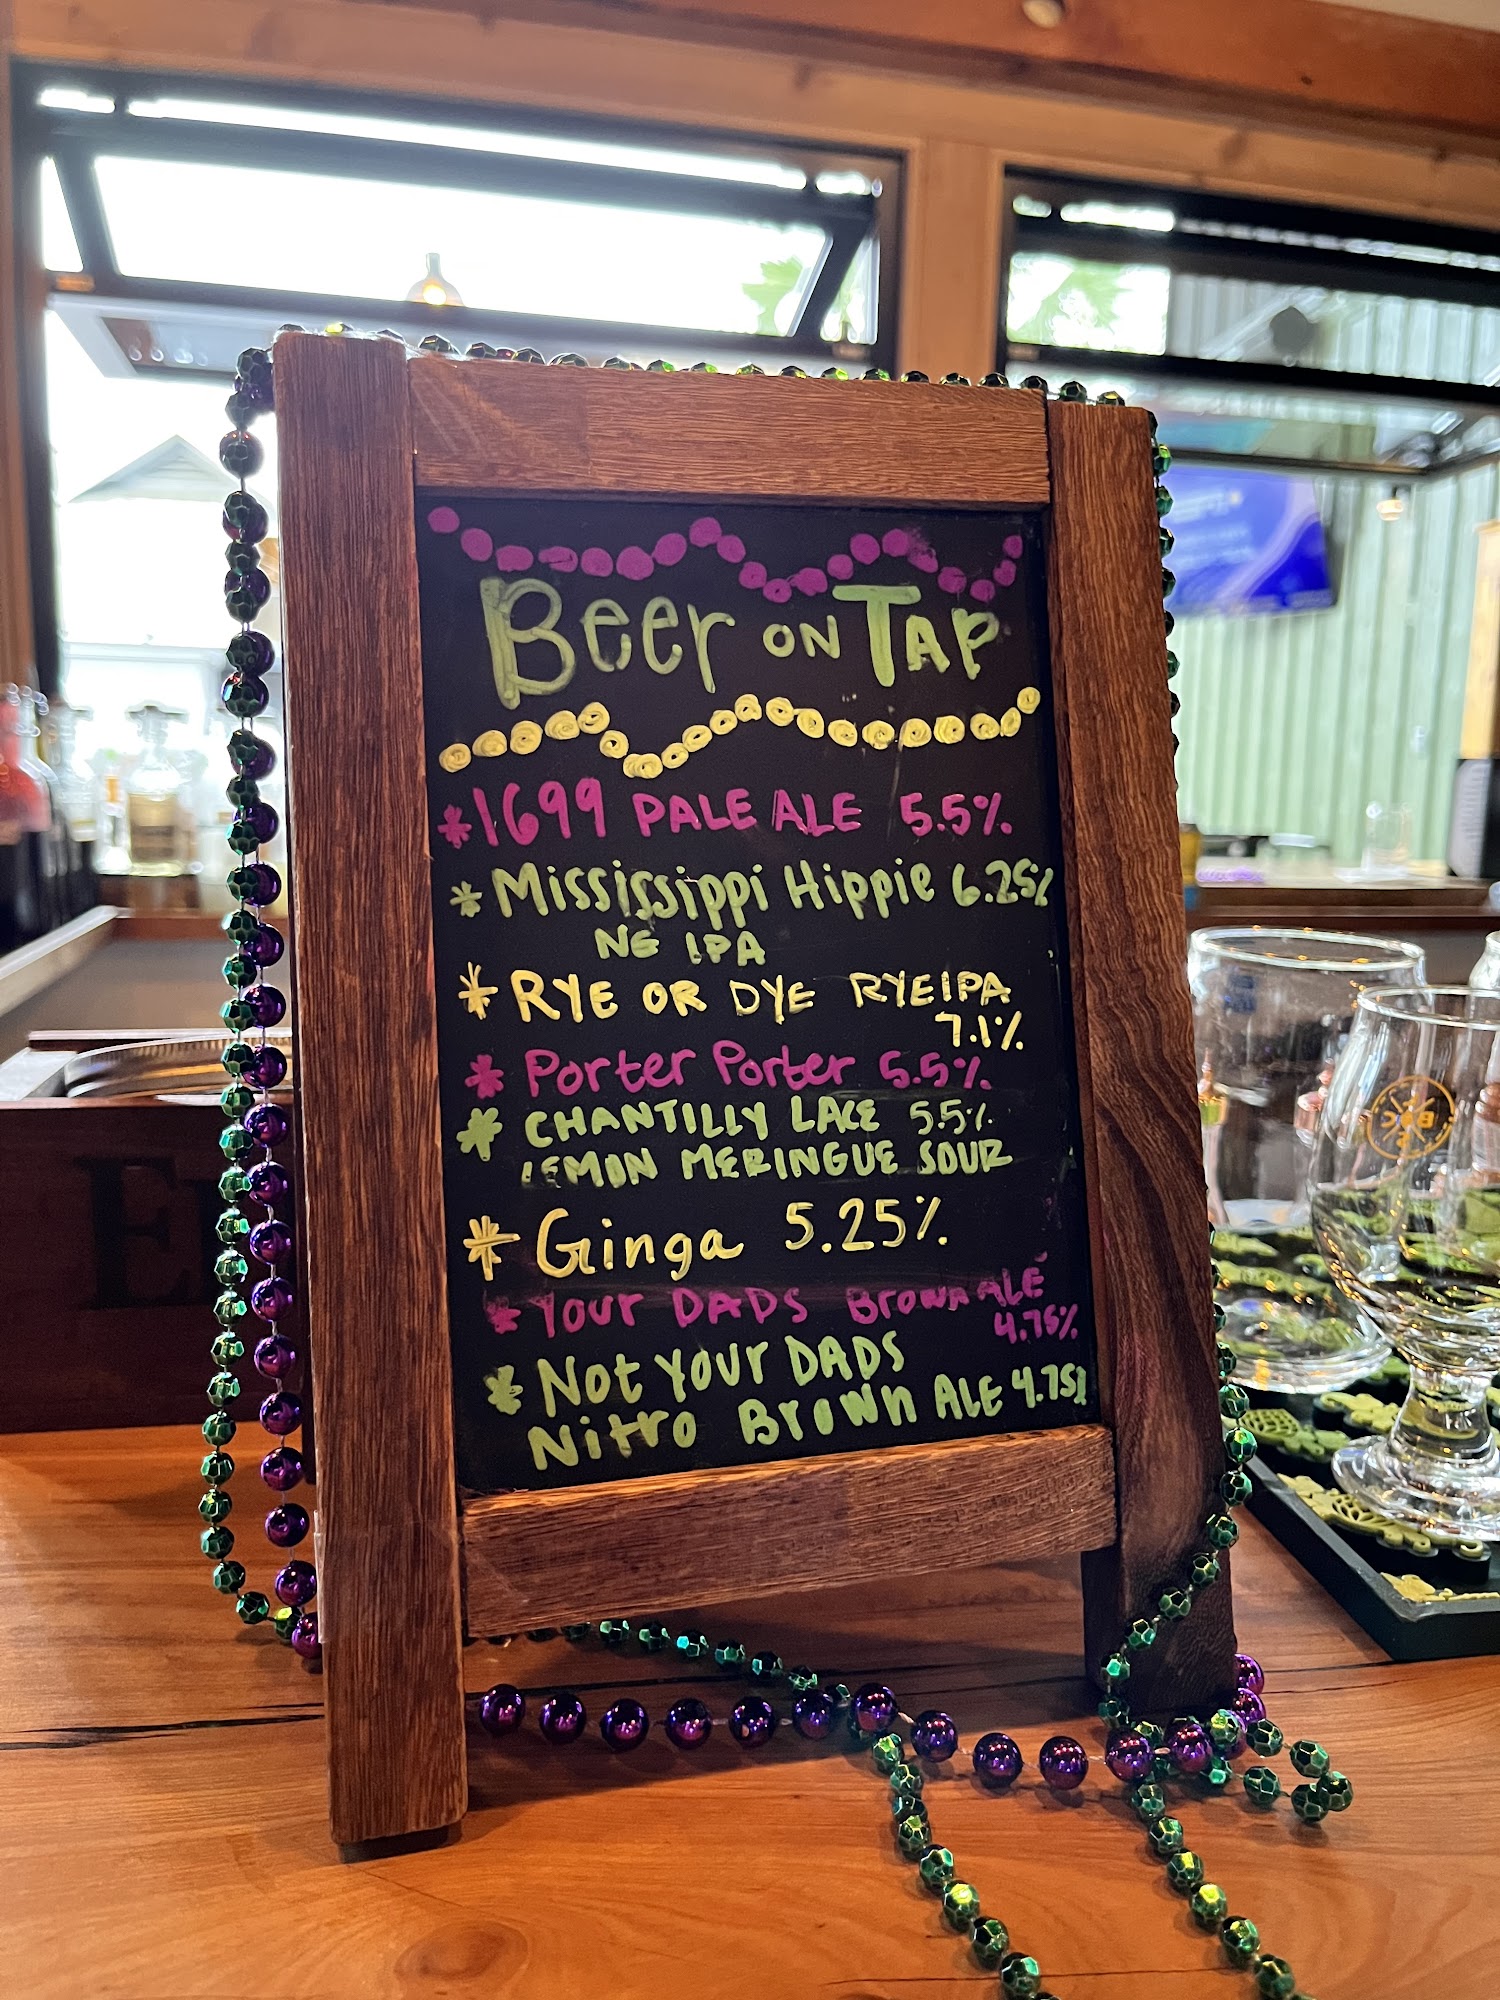 Beer ON TAP
* 1699 PALE ALE 5.5%
* Mississippi Hippie 6.25%
NE IPA
* RYE OR DYE RYE IPA
7.1%
* Porter Porter 5.5%
* CHANTILLY LACE 5.5%
LEMON MERINGUE SOUR
* Ginga 5.25%
* Your DADS Brown ALE
4.75%
* Not Your DADS
Nitro Brown ALE 4.75%